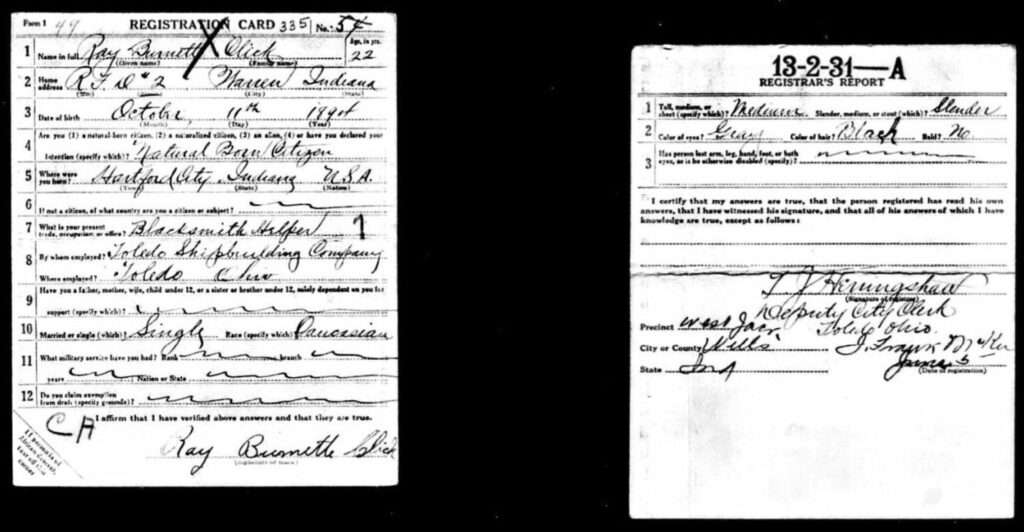 Form 1 49 REGISTRATION CARD 335 No. 54
1 Name in full Ray Burnett X Click Age, in yrs. 22
(Given name) (Family name)
2 Home address R.F.D #2 Warren Indiana
(No.) (Street) (City) (State)
3 Date of birth October 11th 1894
(Month) (Day) (Year)
4 Are you (1) a natural-born citizen, (2) a naturalized citizen, (3) an alien, (4) or have you declared your
intention (specify which)? Natural Born Citizen
5 Where were you born? Hartford City Indiana U.S.A.
(Town) (State) (Nation)
6 If not a citizen, of what country are you a citizen or subject?
7 What is your present trade, occupation, or office? Blacksmith Helper 1
8 By whom employed? Toledo Shipbuilding Company
Where employed? Toledo Ohio
9 Have you a father, mother, wife, child under 12, or a sister or brother under 12, solely dependent on you for
support (specify which)?
10 Married or single (which)? Single Race (specify which)? Caucasian
11 What military service have you had? Rank branch
years Nation or State
12 Do you claim exemption from draft (specify grounds)?
CA I affirm that I have verified above answers and that they are true.
Ray Burnette Click
(Signature or mark)
If person is of African descent, tear off this corner
13-2-31—A
REGISTRAR'S REPORT
1 Tall, medium, or short (specify which)? Medium Slender, medium, or stout (which)? Slender
2 Color of eyes? Gray Color of hair? Black Bald? No
3 Has person lost arm, leg, hand, foot, or both eyes, or is he otherwise disabled (specify)?
I certify that my answers are true, that the person registered has read his own
answers, that I have witnessed his signature, and that all of his answers of which I have
knowledge are true, except as follows:
(Signature of registrar)
Deputy City Clerk
Precinct West Jac Toledo Ohio.
City or County Wells J. Frank
State Ind June 5
(Date of registration)